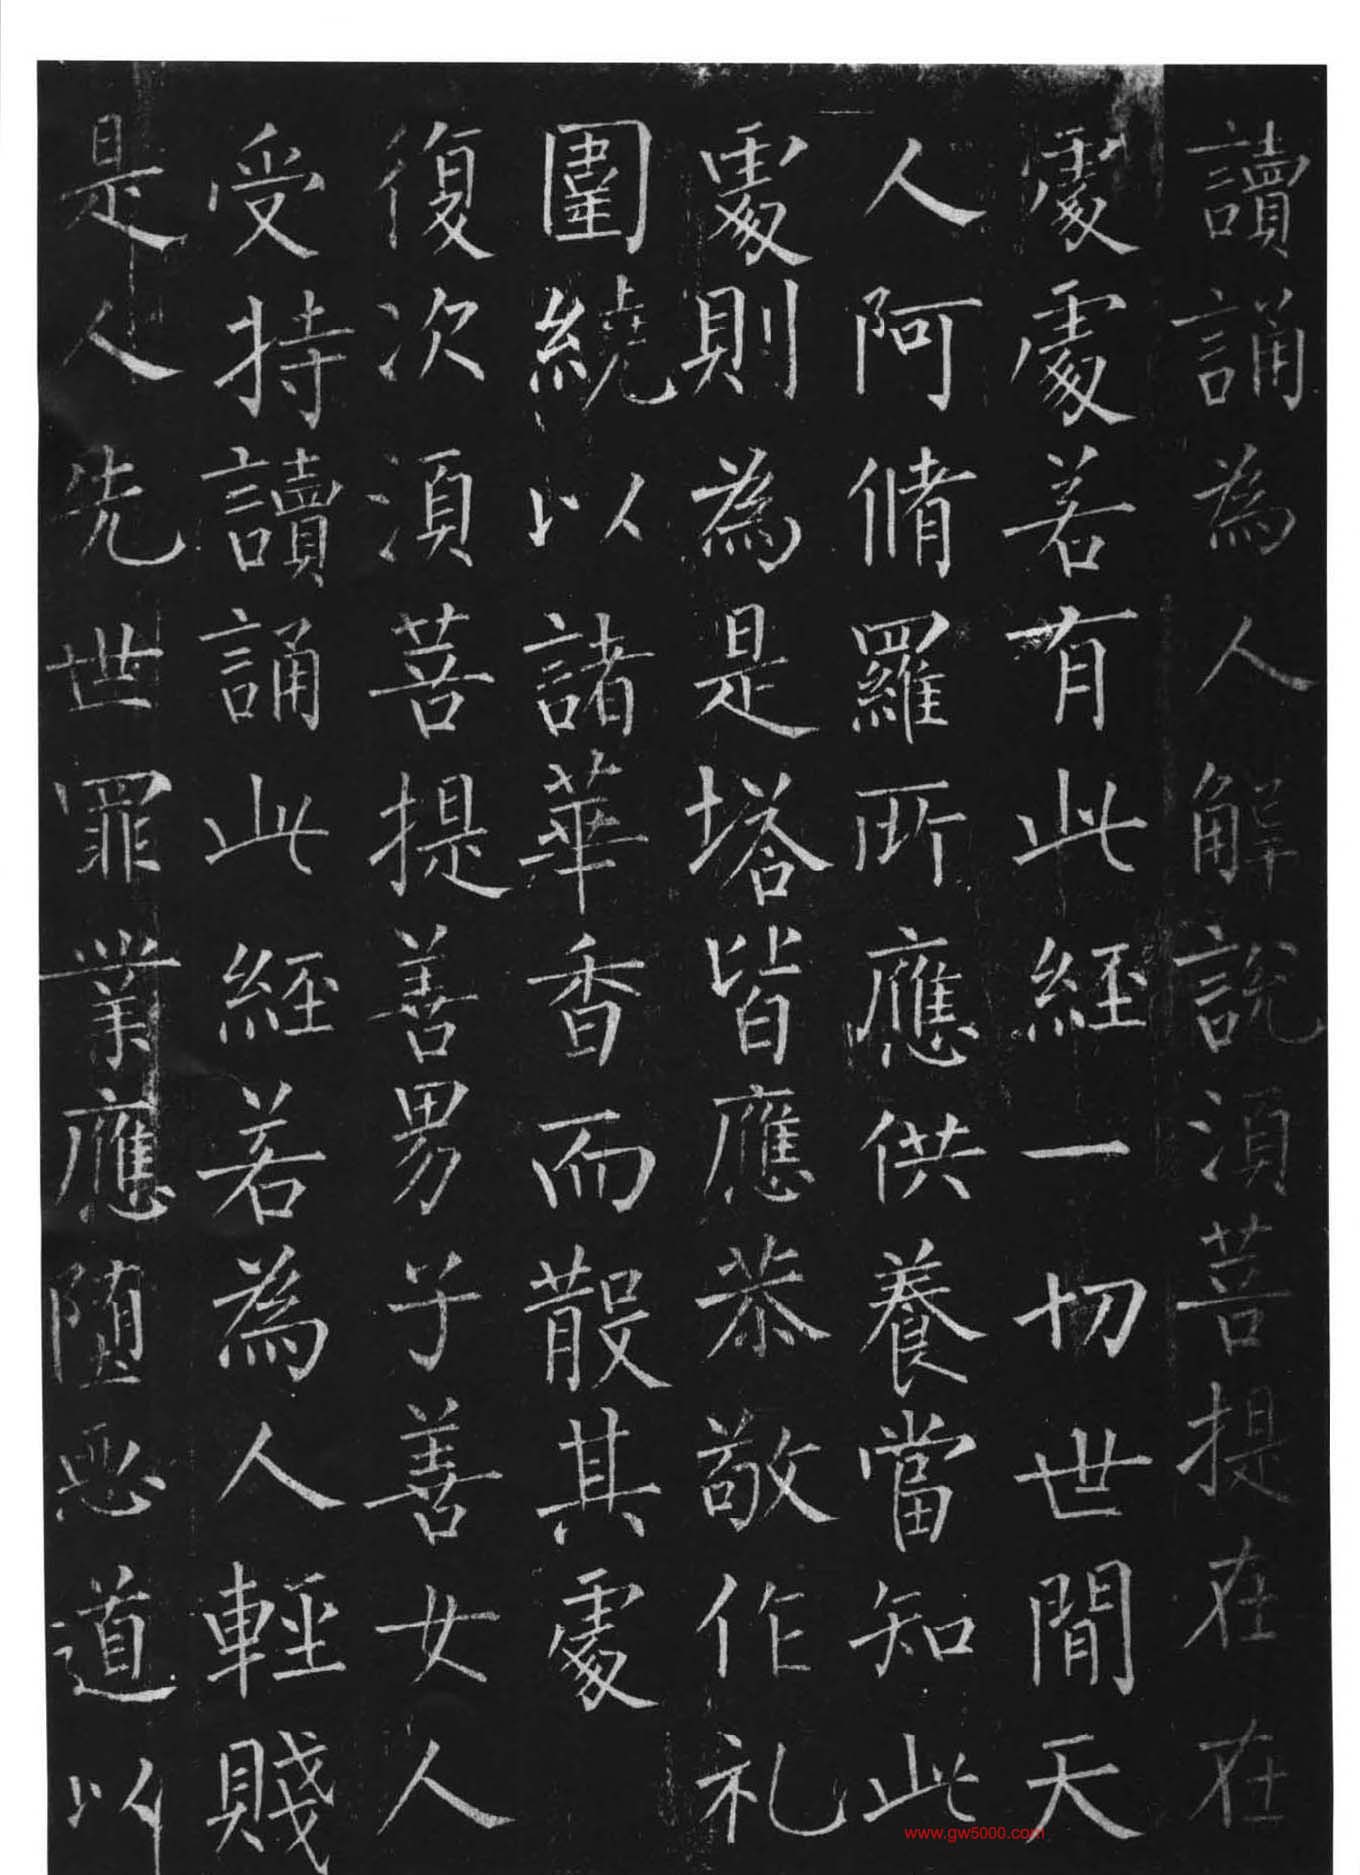 讀誦為人解說須菩提在在
處處若有此經一切世間天
人阿脩羅所應供養當知此
處則為是塔皆應恭敬作礼
圍繞以諸華香而散其處
復次須菩提善男子善女人
受持讀誦此經若為人輕賤
是人先世罪業應墮惡道以
www.gw5000.com